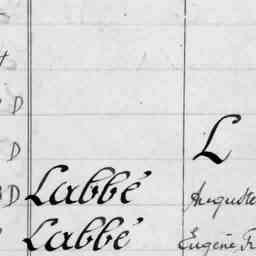 D
L
D
D Labbé Auguste
Labbé Eugène Fr